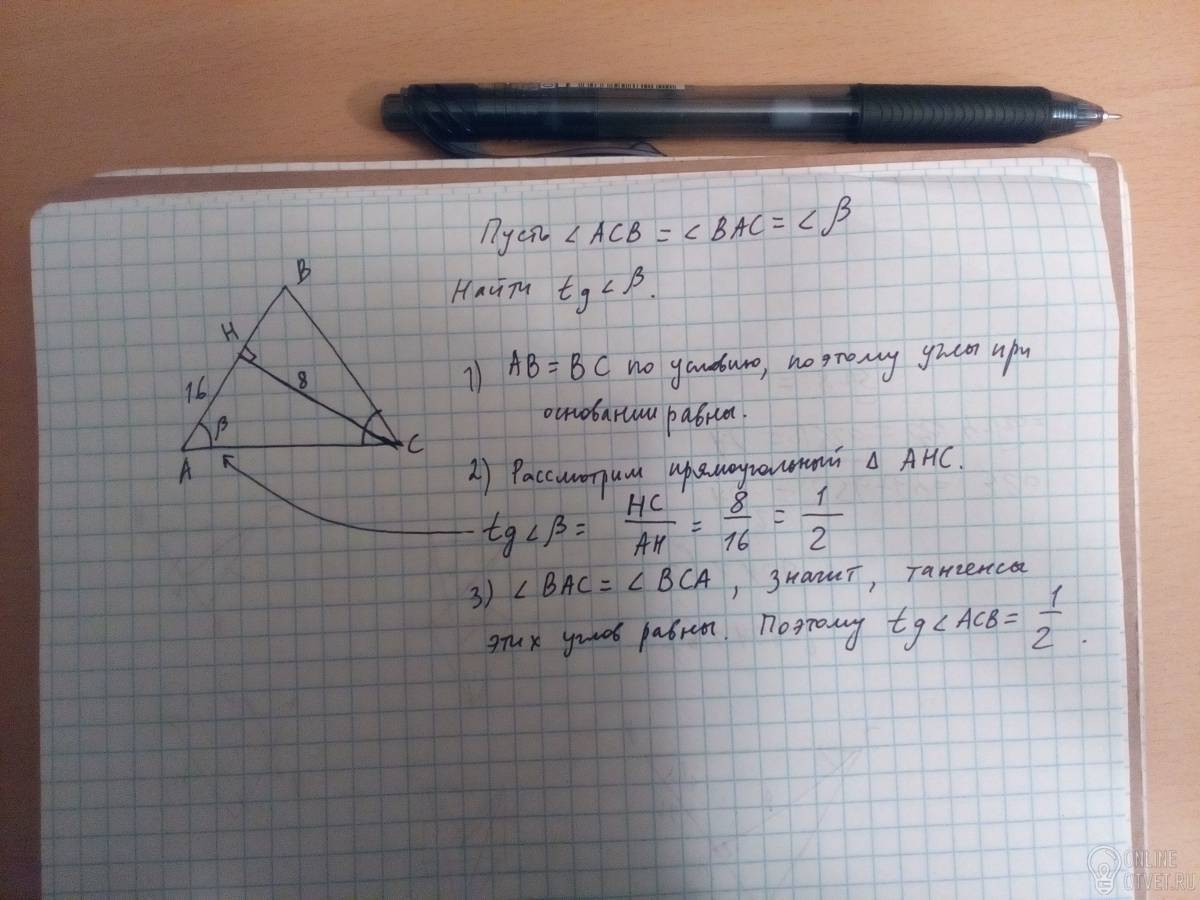 Пусть ∠ ACB = ∠ BAC = ∠ β
Найти tg ∠ β.
B
H
16
8
β
A
C
1) AB = BC по условию, поэтому углы при
основании равны.
2) Рассмотрим прямоугольный Δ AHC.
tg ∠ β = HC/AH = 8/16 = 1/2
3) ∠ BAC = ∠ BCA, значит, тангенсы
этих углов равны. Поэтому tg ∠ ACB = 1/2.
ONLINE
OTVET.RU